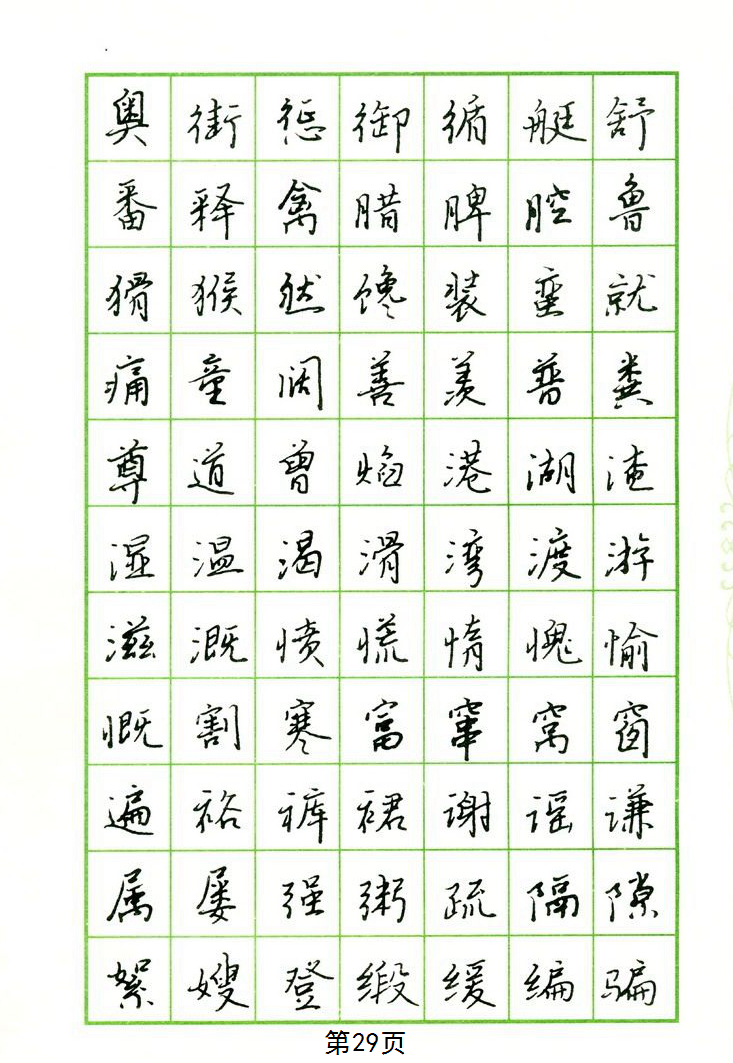 奥街惩御循艇舒
番释禽腊脾腔鲁
猾猴然馋装蛮就
痛童阔善羡普粪
尊道曾焰港湖渣
湿温渴滑湾渡游
滋溉愤慌惰愧愉
慨割寒富窜窝窗
遍裕裤裙谢谣谦
属屡强粥疏隔隙
絮嫂登缎缓编骗
第29页